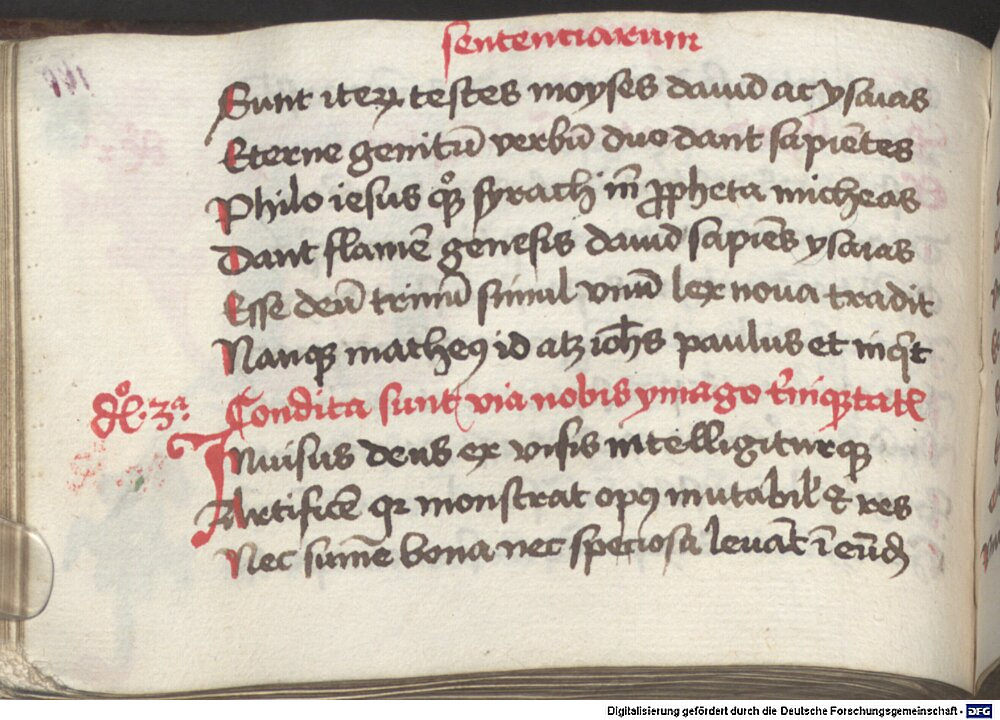 sentenciarum
Sunt iteꝝ testes moyses dauid ac ysaias
Eterne genitū verbū duo dant sapiētes
Philo iesus qͦꝫ syrach īn ꝓpheta micheas
Dant flamē genesis dauid sapiēs ysaias
Esse deū trinū simul vnū lex noua tradit
Nanqꝫ matheꝯ id atꝫ ioh̄s paulus et inqͥt
dͦi. 3ᵃ. Condita sunt via nobis ymago
Inuisus deus ex visis intelligiturqꝫ
Artificē qr monstrat opꝯ mutabil' & res
Nec sūme bona nec speciosa leuāt ī eūdē
Digitalisierung gefördert durch die Deutsche Forschungsgemeinschaft - DFG